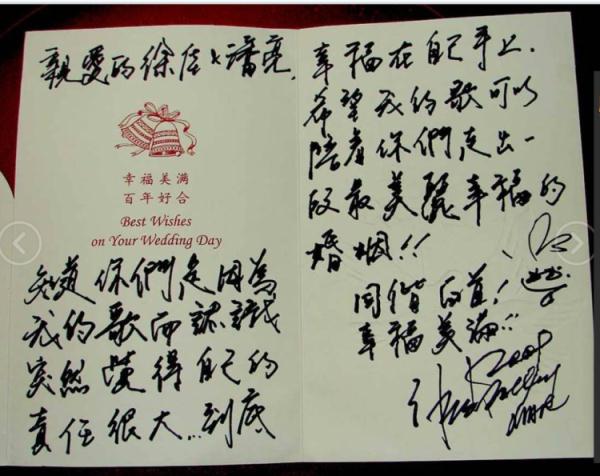 親愛的徐佳&潘亮,
幸福美满
百年好合
Best Wishes
on Your Wedding Day
知道你們是因為
我的歌而認識
突然覺得自己的
責任很大...到底
幸福在自己手上.
希望我的歌可以
陪着你們走出一
段最美麗幸福的
婚姻!!
同偕白首!
幸福美滿!!
2009
MAR